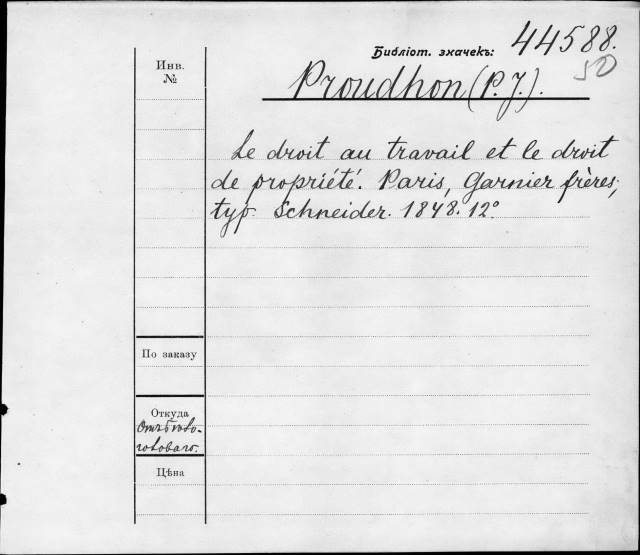 Библіот. значекъ: 44588.
50
Инв.
№
Proudhon (P. J.).
Le droit au travail et le droit
de propriété. Paris, Garnier frères;
typ. Schneider. 1848. 12°
По заказу
Откуда
Цѣна